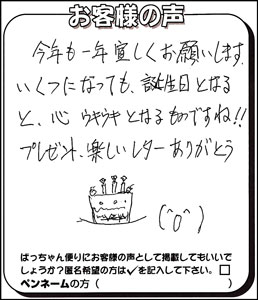 お客様の声
今年も一年宜しくお願いします。
いくつになっても、誕生日となる
と、心 ウキウキとなるものですね!!
プレゼント、楽しいレターありがとう
(^o^)
ばっちゃん便りにお客様の声として掲載してもいいで
しょうか?匿名希望の方は✓を記入して下さい。□
ペンネームの方( )